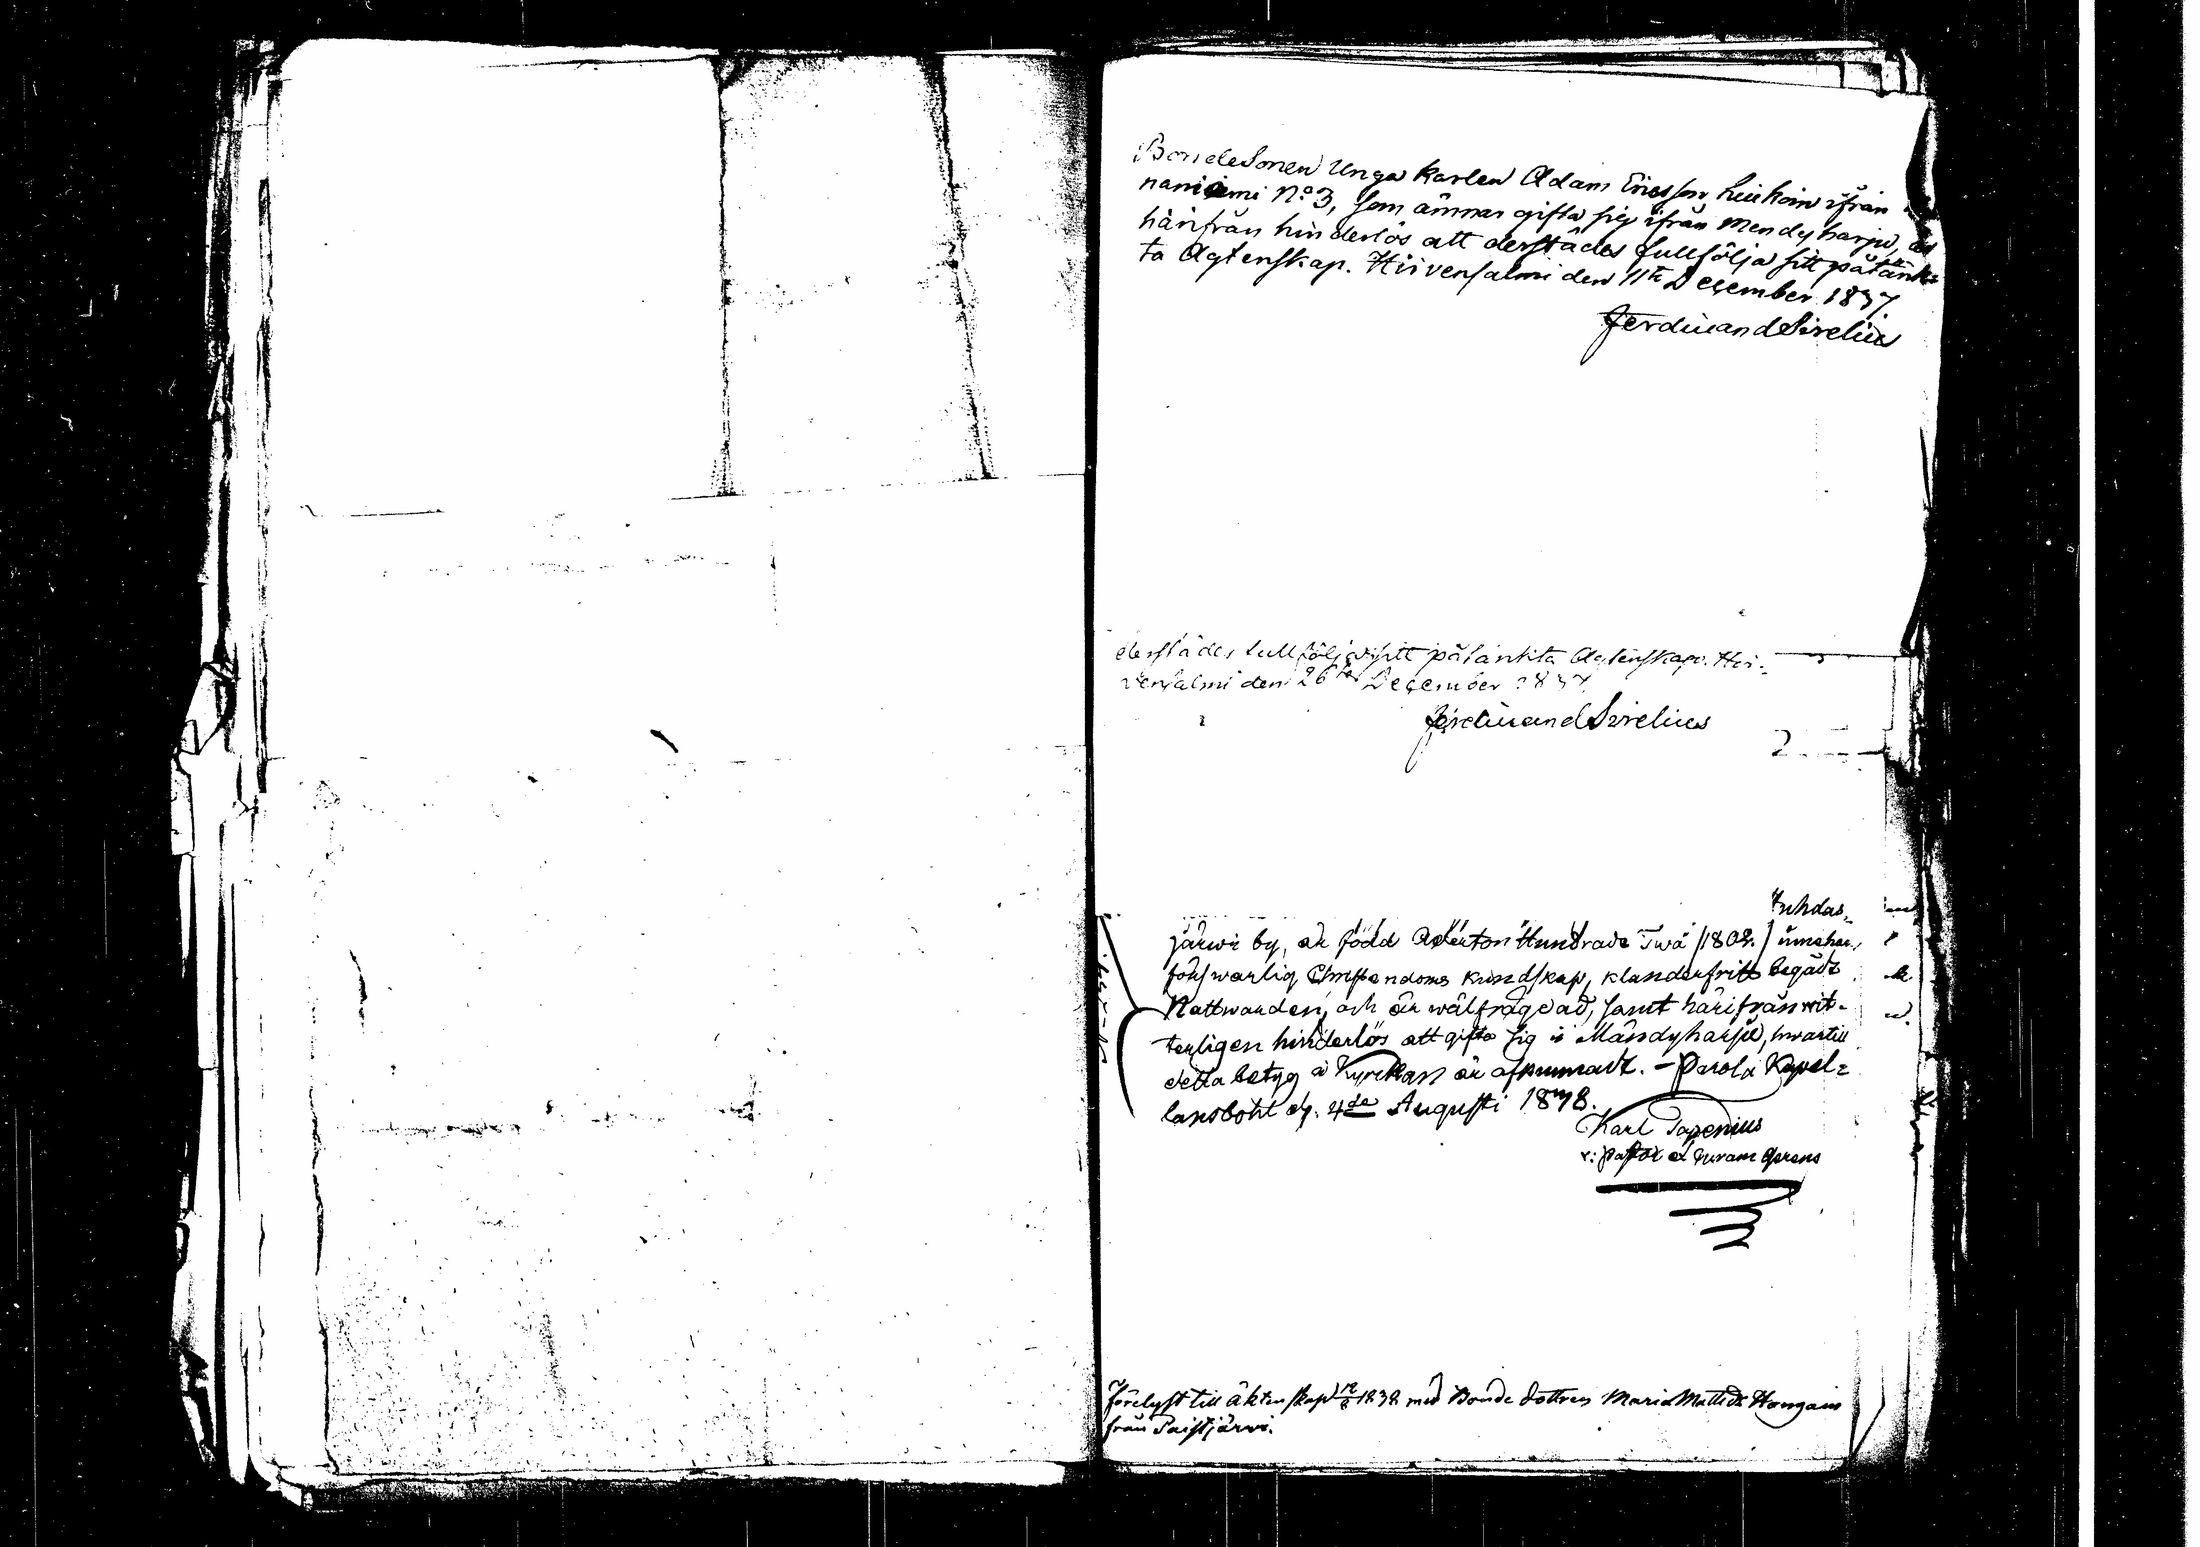 Bondesonen Unga Karlen Adam Ericsson Leikoin ifrån
naniemi No 3, som ämnar gifta sig ifrån Mendyharju, är
härifrån hinderlös att derstädes fullfölja sitt påtänk=
ta Agtenskap. Hirvensalmi den 11te December 1837
Ferdinand Sirelius
derstädes fullfölja sitt påtänkta Agtenskap. Hir-
vensalmi den 26te December 1837
Ferdinand Sirelius
Tuhdas,
järwi by, är född Aderton Hundrade Twå (1802.)
förswarlig Christendoms Kundskap, klanderfritt begådt
Nattwarden, och är wälfrägdad, samt härifrån wit-
terligen hinderlös att gifta sig i Mändyharju, hwartill
detta betyg ä Kyrckan är afkunnadt. – Parola Kapel=
lansbohl dy. 4de Augusti 1838.
Karl Tapenius
v: Pastor et Curam Gerens
Förelyst till äktenskap 12/8 1838 med Bonde dottren Maria Mattsdr Hongain
från Paistjärwi.